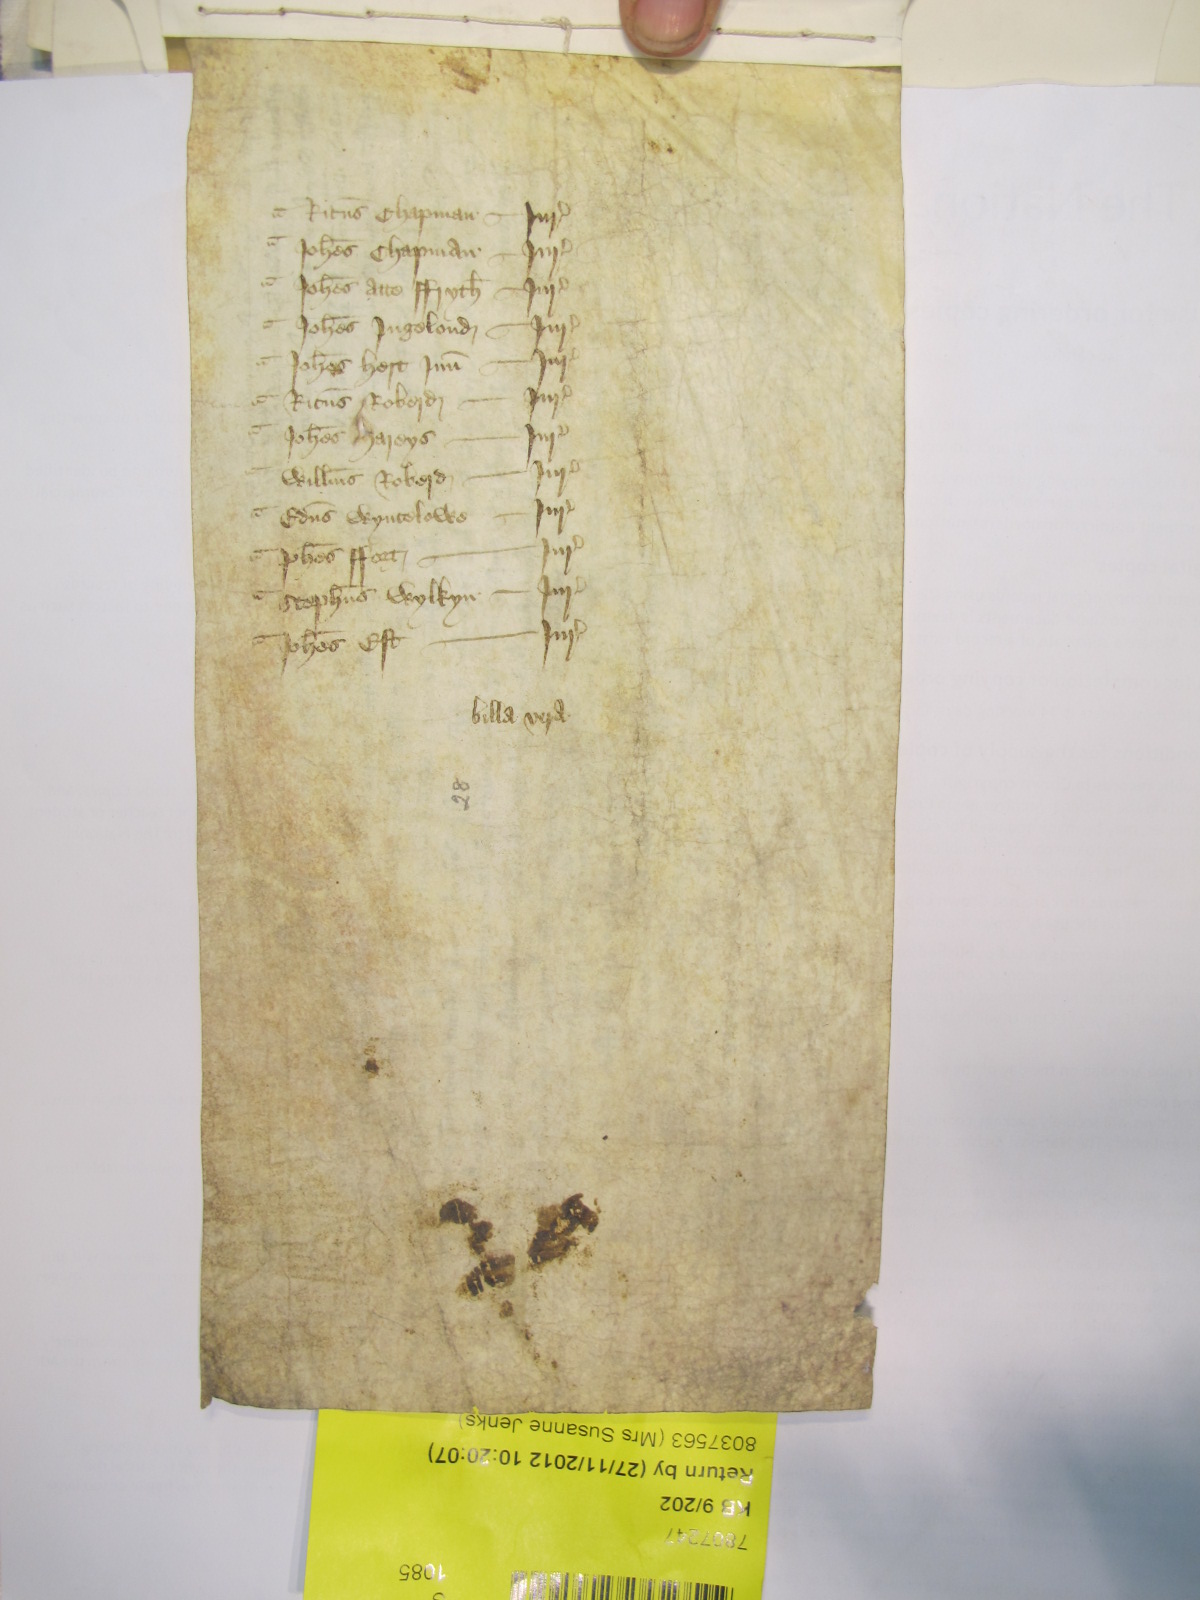 Ricus Chapman Jur
Johes Chapman Jur
Johes atte ffryth Jur
Johes Jngelond Jur
Johes hert Jun Jur
Ricus Roberd Jur
Johes hareys Jur
Willms Roberd Jur
Edus Wyntelowe Jur
Johes Jur
Stephus Wylkyn Jur
Johes Est Jur
billa vera
28
8037563 (Mrs Susanne Jenks)
Return by (27/11/2012 10:20:07)
KB 9/202
7807247
1085